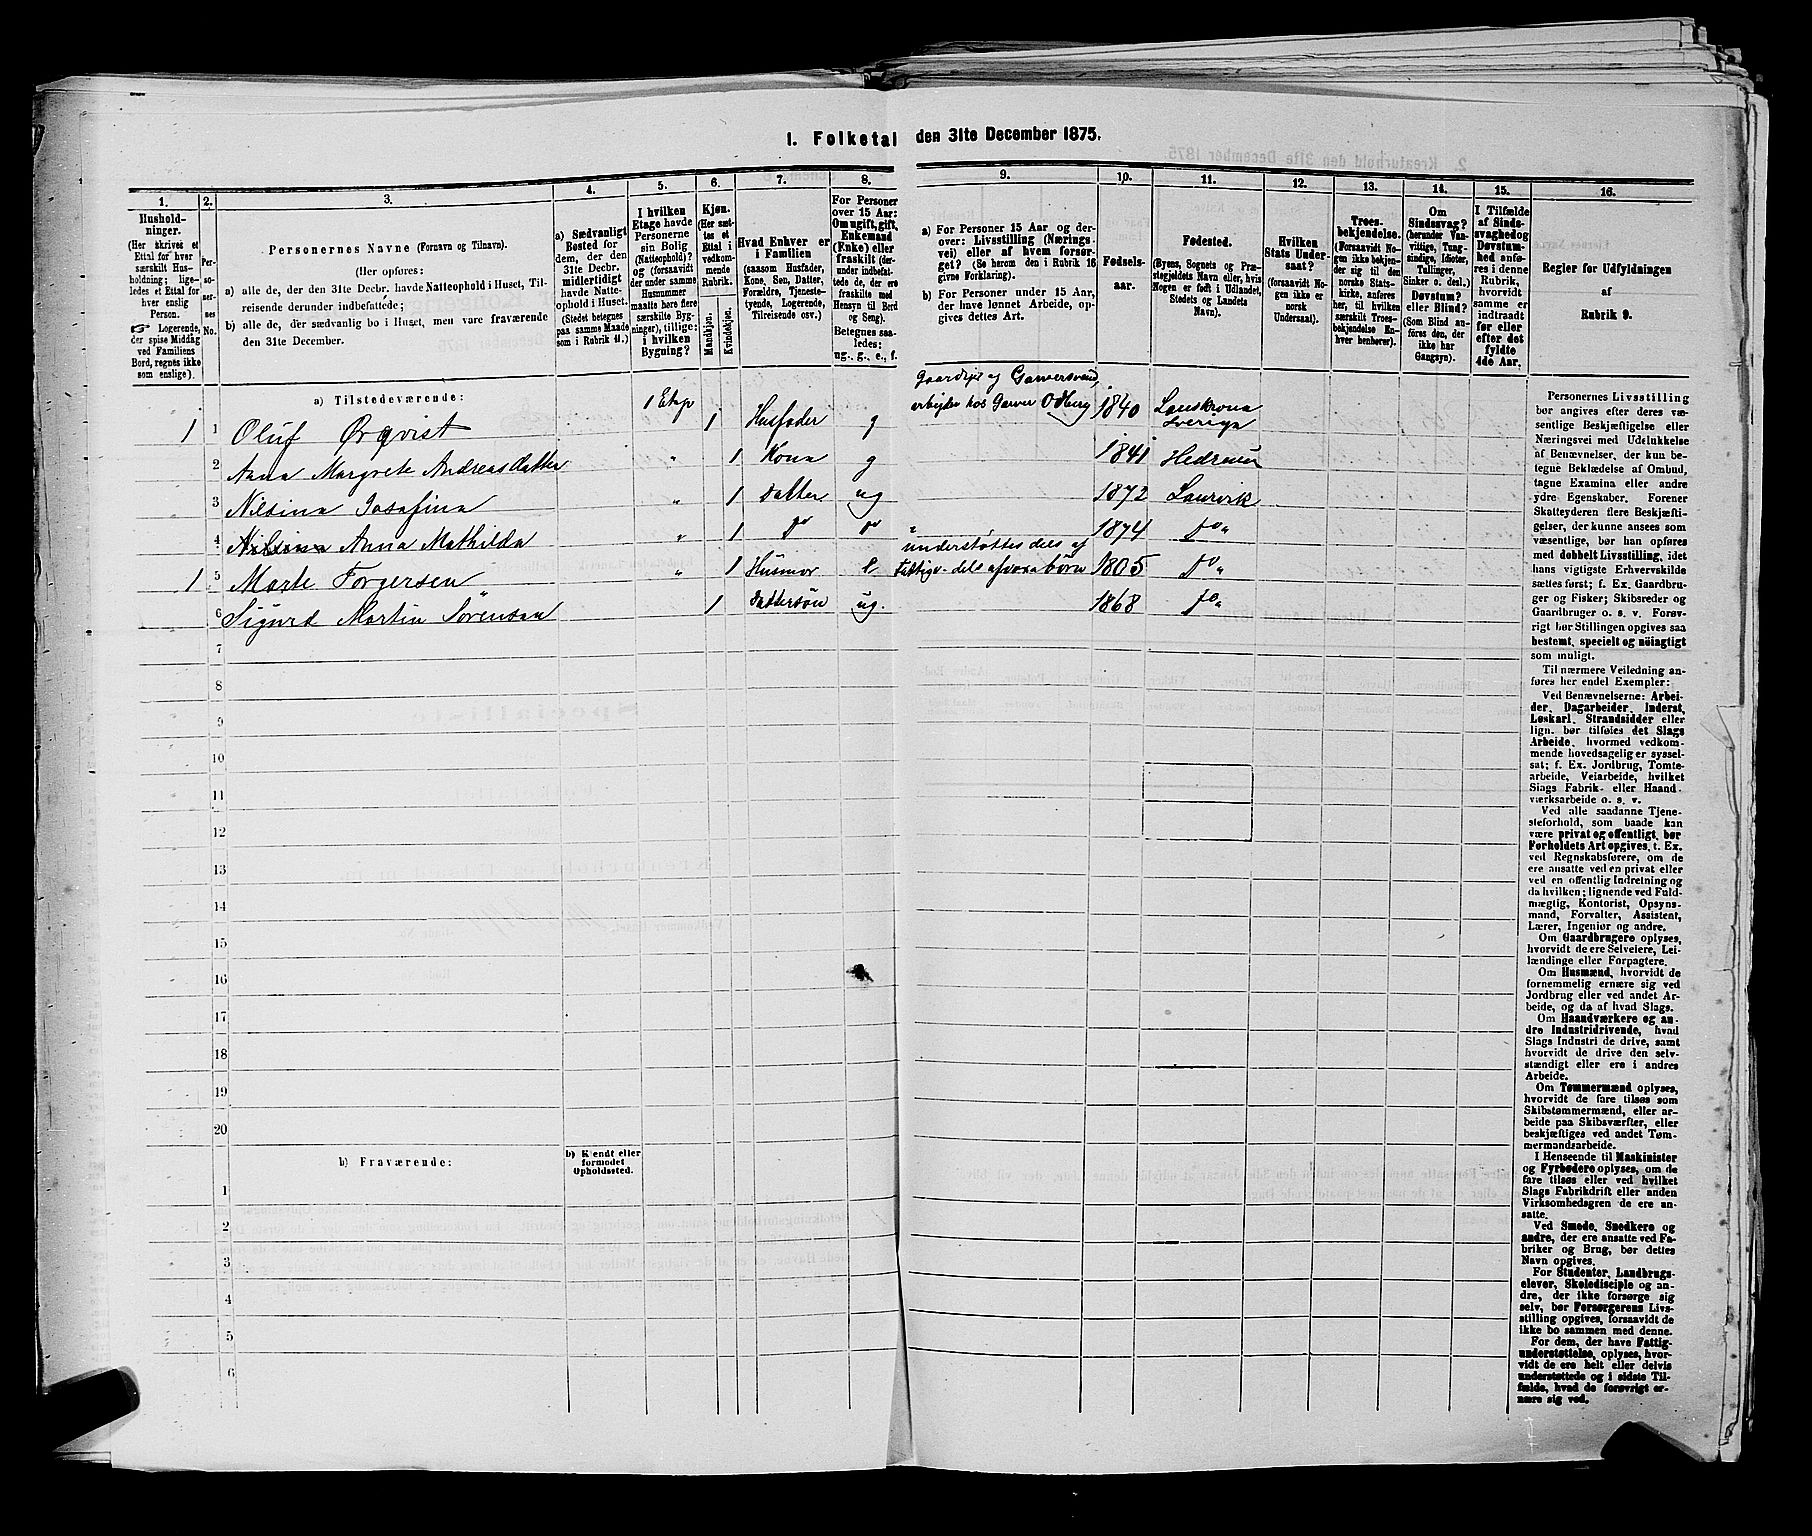 1. Folketal den 31te December 1875.
1.
Hushold-
ninger.
(Her skrives et
Ettal for hver
særskilt Hus-
holdning; lige-
ledes et Ettal for
hver enslig
Person.
☞ Logerende,
der spise Middag
ved Familiens
Bord, regnes ikke
som enslige).
2.
Per-
so-
ner-
nes
No.
3.
Personernes Navne (Fornavn og Tilnavn).
(Her opføres:
a) alle de, der den 31te Decbr. havde Natteophold i Huset, Til-
reisende derunder indbefattede;
b) alle de, der sædvanlig bo i Huset, men vare fraværende
den 31te December.
4.
a) Sædvanligt
Bosted for
dem, der den
31te Decbr.
midlertidigt
havde Natte-
ophold i Huset.
(Stedet betegnes
paa samme Maade
som i Rubrik 11.)
5.
I hvilken
Etage havde
Personerne
sin Bolig
(Natteophold)?
og (forsaavidt
der under samme
Husnummer
maatte høre flere
særskilte Byg-
ninger), tillige:
i hvilken
Bygning?
6.
Kjøn.
(Her sæt-
tes et
Ettal i
vedkom-
mende
Rubrik.
Mandkjøn.
Kvindekjøn.
7.
Hvad Enhver er
i Familien
(saasom Husfader,
Kone, Søn, Datter,
Forældre, Tjeneste-
tyende, Logerende,
Tilreisende osv.)
8.
For Personer
over 15 Aar:
Om ugift, gift,
Enkemand
(Enke) eller
fraskilt (der-
under indbefat-
tede de, der ere
fraskilte med
Hensyn til Bord
og Seng).
Betegnes saa-
ledes:
ug., g., e., f.
9.
a) For Personer 15 Aar og der-
over: Livsstilling (Nærings-
vei) eller af hvem forsør-
get? (Se herom den i Rubrik 16
givne Forklaring).
b) For Personer under 15 Aar,
der have lønnet Arbeide, op-
gives dettes Art.
10.
Fødsels-
aar.
11.
Fødested.
(Byens, Sognets og Præ-
stegjeldets Navn eller, hvis
Nogen er født i Udlandet,
Stedets og Landets
Navn).
12.
Hvilken
Stats Under-
saat?
(forsaavidt No-
gen ikke er
norsk
Undersaat).
13.
Troes-
bekjendelse.
(Forsaavidt No-
gen ikke bekjen-
der sig til den
norske Stats-
kirke, anføres
her, til hvilken
særskilt Troes-
bekjendelse En-
hver henhører).
14.
Om
Sindssvag?
(herunder Van-
vittige, Tung-
sindige, Idioter,
Tullinger,
Sinker o. desl.)
Døvstum?
eller Blind?
(Som Blind an-
føres den, der
ikke har
Gangsyn).
15.
I Tilfælde
af Sinds-
svaghed og
Døvstum-
hed anfø-
res i denne
Rubrik,
hvorvidt
samme er
indtraadt
før eller
efter det
fyldte
4de Aar.
16.
Regler for Udfyldningen
af
Rubrik 9.
a) Tilstedeværende:
1 1 Oluf Ørqvist 1 Etage 1 Husfader g Gaardejer og Garversvend, arbejder hos Garver Odberg 1840 Lanskrona Sverige
2 Anna Margrete Andreasdatter " 1 Kona g 1841 Hedrum
3 Nilsina Josefina " 1 Datter ug 1872 Laurvik
4 Nilsina Anna Mathilda " 1 Do Do " 1874 Do "
1 5 Marte Torgersen " 1 Husmor e understøttes dels af Fattigv. dels af voxne børn 1805 Do "
6 Sigurd Martin Sørensen 1 Dattersøn ug. 1868 Do "
7
8
9
10
11
12
13
14
15
16
17
18
19
20
b) Fraværende:
b) Kjendt eller
formodet
Opholdssted.
1
2
3
4
5
6
Personernes Livsstilling
bør angives efter deres væ-
sentlige Beskjæftigelse eller
Næringsvei med Udelukkelse
af Benævnelser, der kun be-
tegne Beklædelse af Ombud,
tagne Examina eller andre
ydre Egenskaber. Forener
Skatteyderen flere Beskjæfti-
gelser, der kunne ansees som
væsentlige, bør han opføres
med dobbelt Livsstilling, idet
hans vigtigste Erhvervskilde
sættes først; f. Ex. Gaardbru-
ger og Fisker; Skibsreder og
Gaardbruger o. s. v. Forøv-
rigt bør Stillingen opgives saa
bestemt, specielt og nøiagtigt
som muligt.
Til nærmere Veiledning an-
føres her endel Exempler:
Ved Benævnelserne: Arbei-
der, Dagarbeider, Inderst,
Løskarl, Strandsidder eller
lign. bør tilføies det Slags
Arbeide, hvormed vedkom-
mende hovedsagelig er syssel-
sat; f. Ex. Jordbrug, Tomte-
arbeide, Veiarbeide, hvilket
Slags Fabrik- eller Haand-
værksarbeide o. s. v.
Ved alle saadanne Tjene-
steforhold, som baade kan
være privat og offentligt, bør
Forholdets Art opgives, t. Ex.
ved Regnskabsførere, om de
ere ansatte ved en privat eller
ved en offentlig Indretning og
da hvilken; lignende ved Fuld-
mægtig, Kontorist, Opsyns-
mand, Forvalter, Assistent,
Lærer, Ingeniør og andre.
Om Gaardbrugere oplyses,
hvorvidt de ere Selveiere, Lei-
lændinge eller Forpagtere.
Om Husmænd, hvorvidt de
fornemmelig ernære sig ved
Jordbrug eller ved andet Ar-
beide, og da af hvad Slags.
Om Haandværkere og an-
dre Industridrivende, hvad
Slags Industri de drive, samt
hvorvidt de drive den selv-
stændigt eller ere i andres
Arbeide.
Om Tømmermænd oplyses,
hvorvidt de fare tilsøs som
Skibstømmermænd, eller ar-
beide paa Skibsværfter, eller
beskjæftiges ved andet Tøm-
mermandsarbeide.
I Henseende til Maskinister
og Fyrbødere oplyses, om de
fare tilsøs eller ved hvilket
Slags Fabrikdrift eller anden
Virksomhedsgren de ere an-
satte.
Ved Smede, Snedkere og
andre, der ere ansatte ved Fa-
briker og Brug, bør dettes
Navn opgives.
For Studenter, Landbrugs-
elever, Skoledisciple og an-
dre, der ikke forsørge sig
selv, bør Forsørgerens Livs-
stilling opgives, forsaavidt de
ikke bo sammen med denne.
For dem, der have Fattig-
understøttelse, oplyses, hvor-
vidt de ere helt eller delvis
understøttede og i sidste Til-
fælde, hvad de forøvrigt er-
nære sig ved.